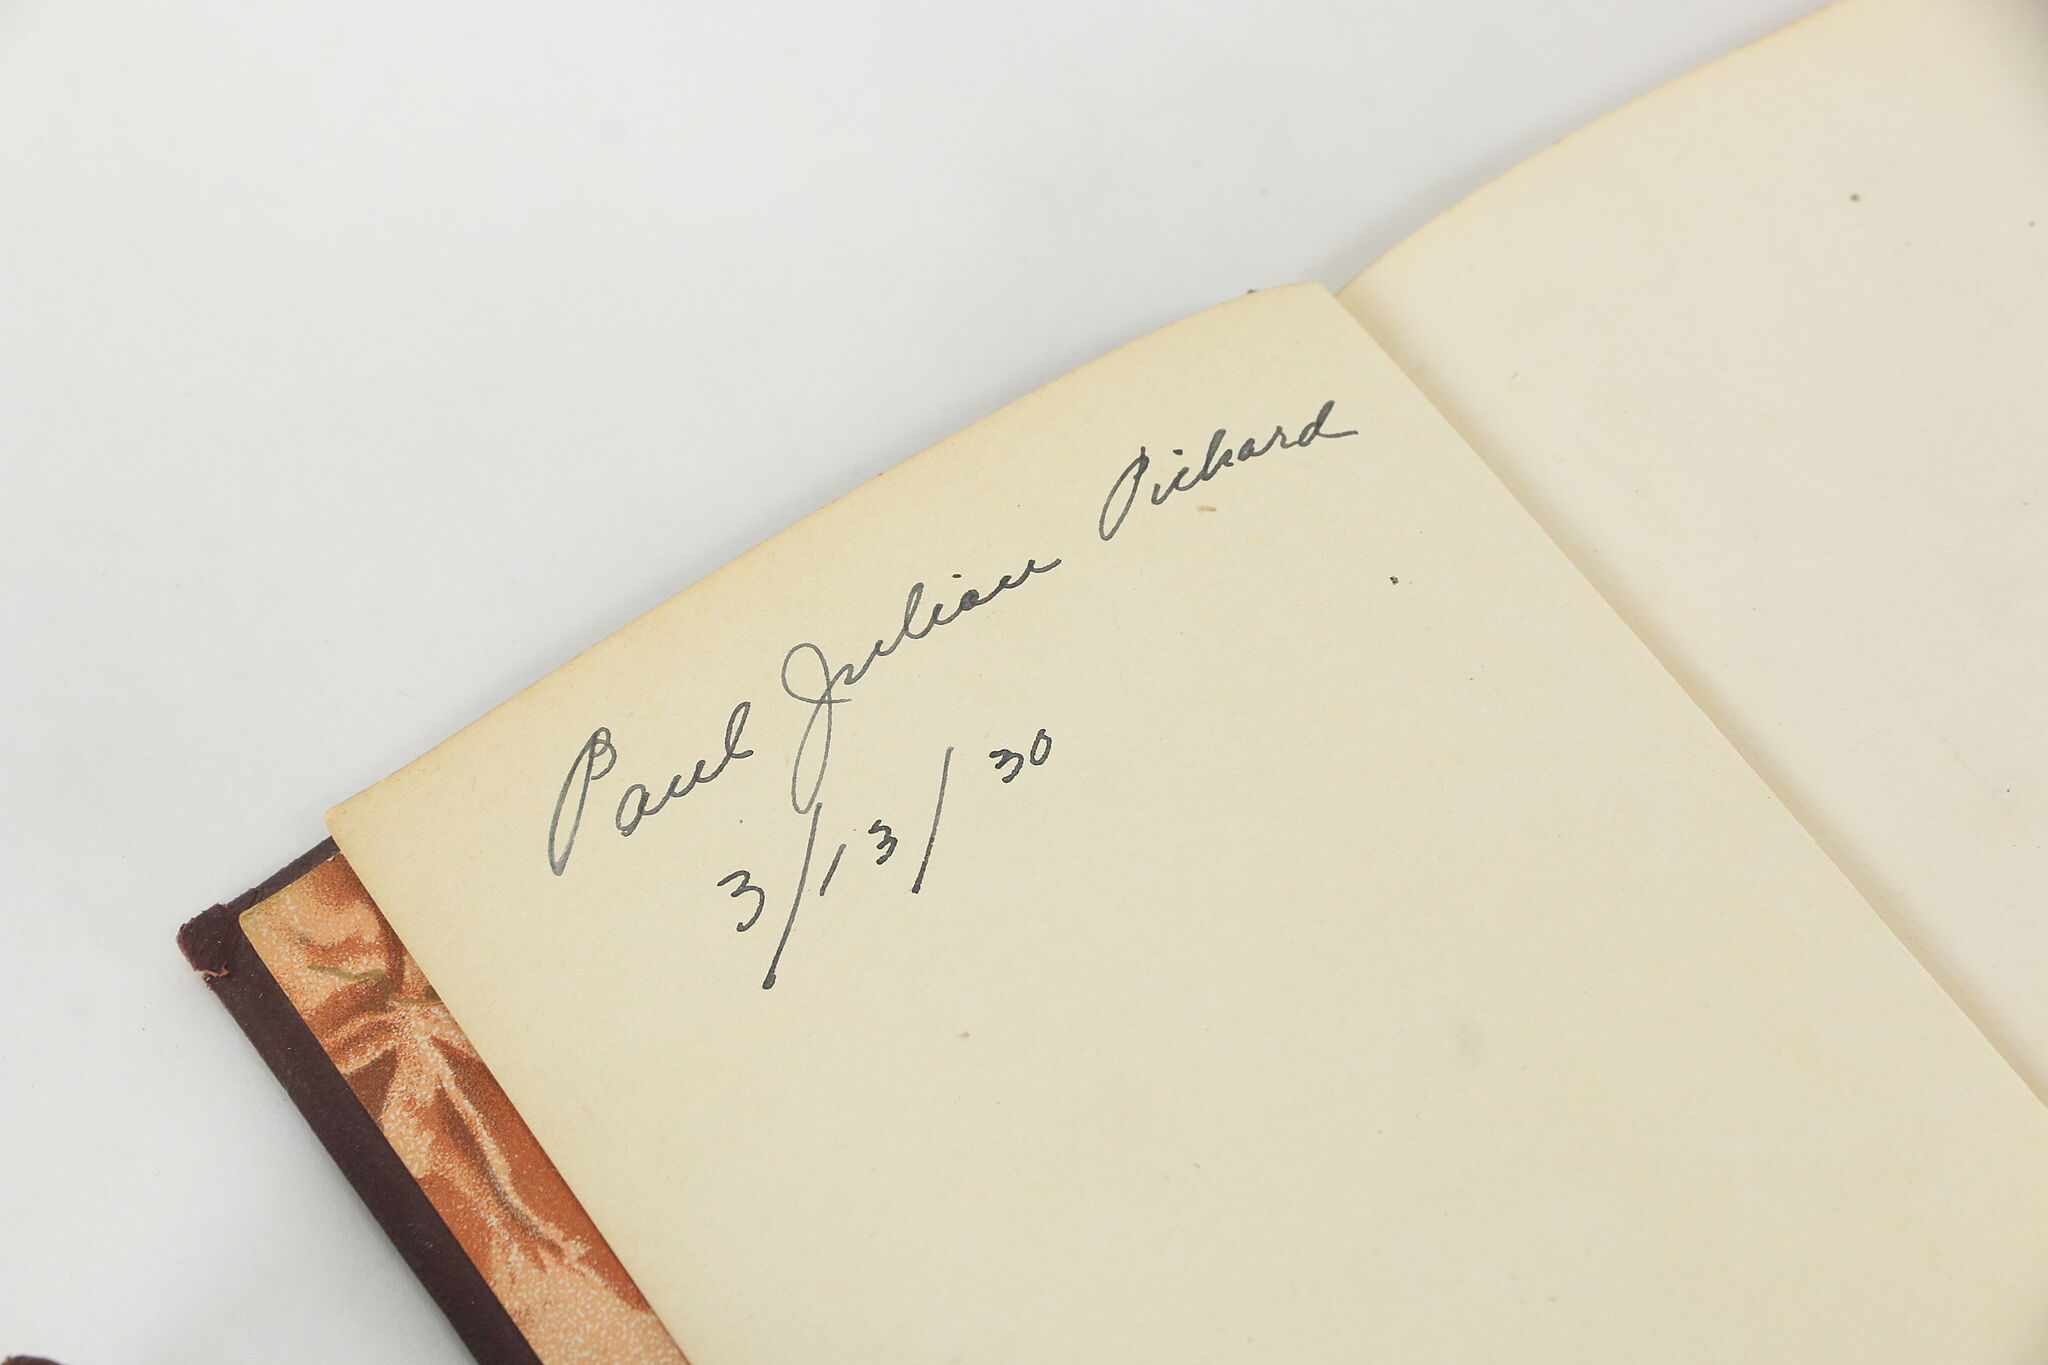 Paul Julian Pickard
3/13/30